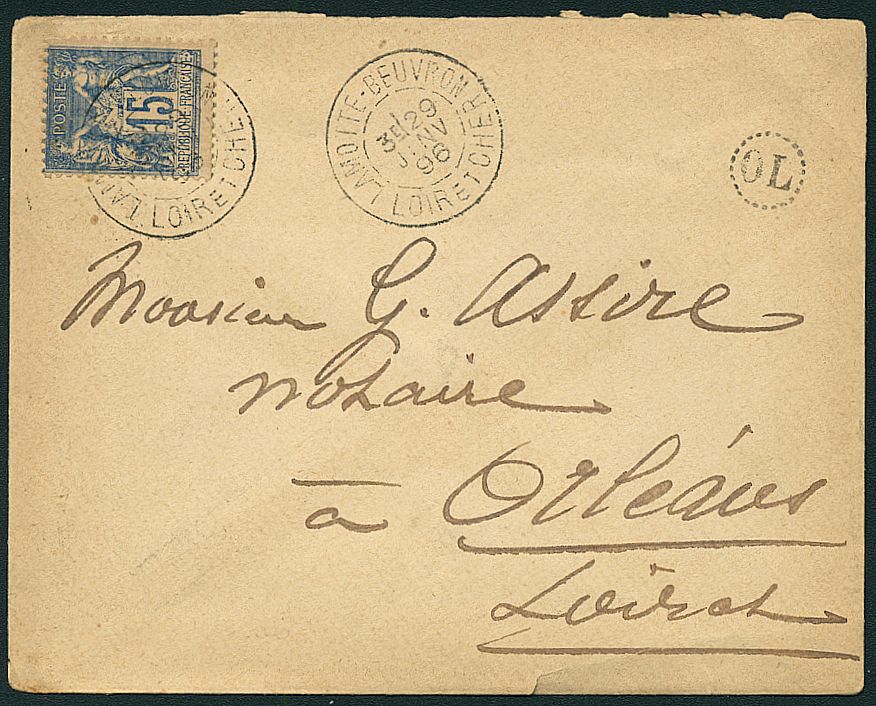 POSTE
15
REPUBLIQUE FRANÇAISE
LOIR ET CHER
LAMOTTE-BEUVRON
3E
29
JANV
96
LOIR ET CHER
OL
Monsieur G. Assire
notaire
à Orléans
Loiret